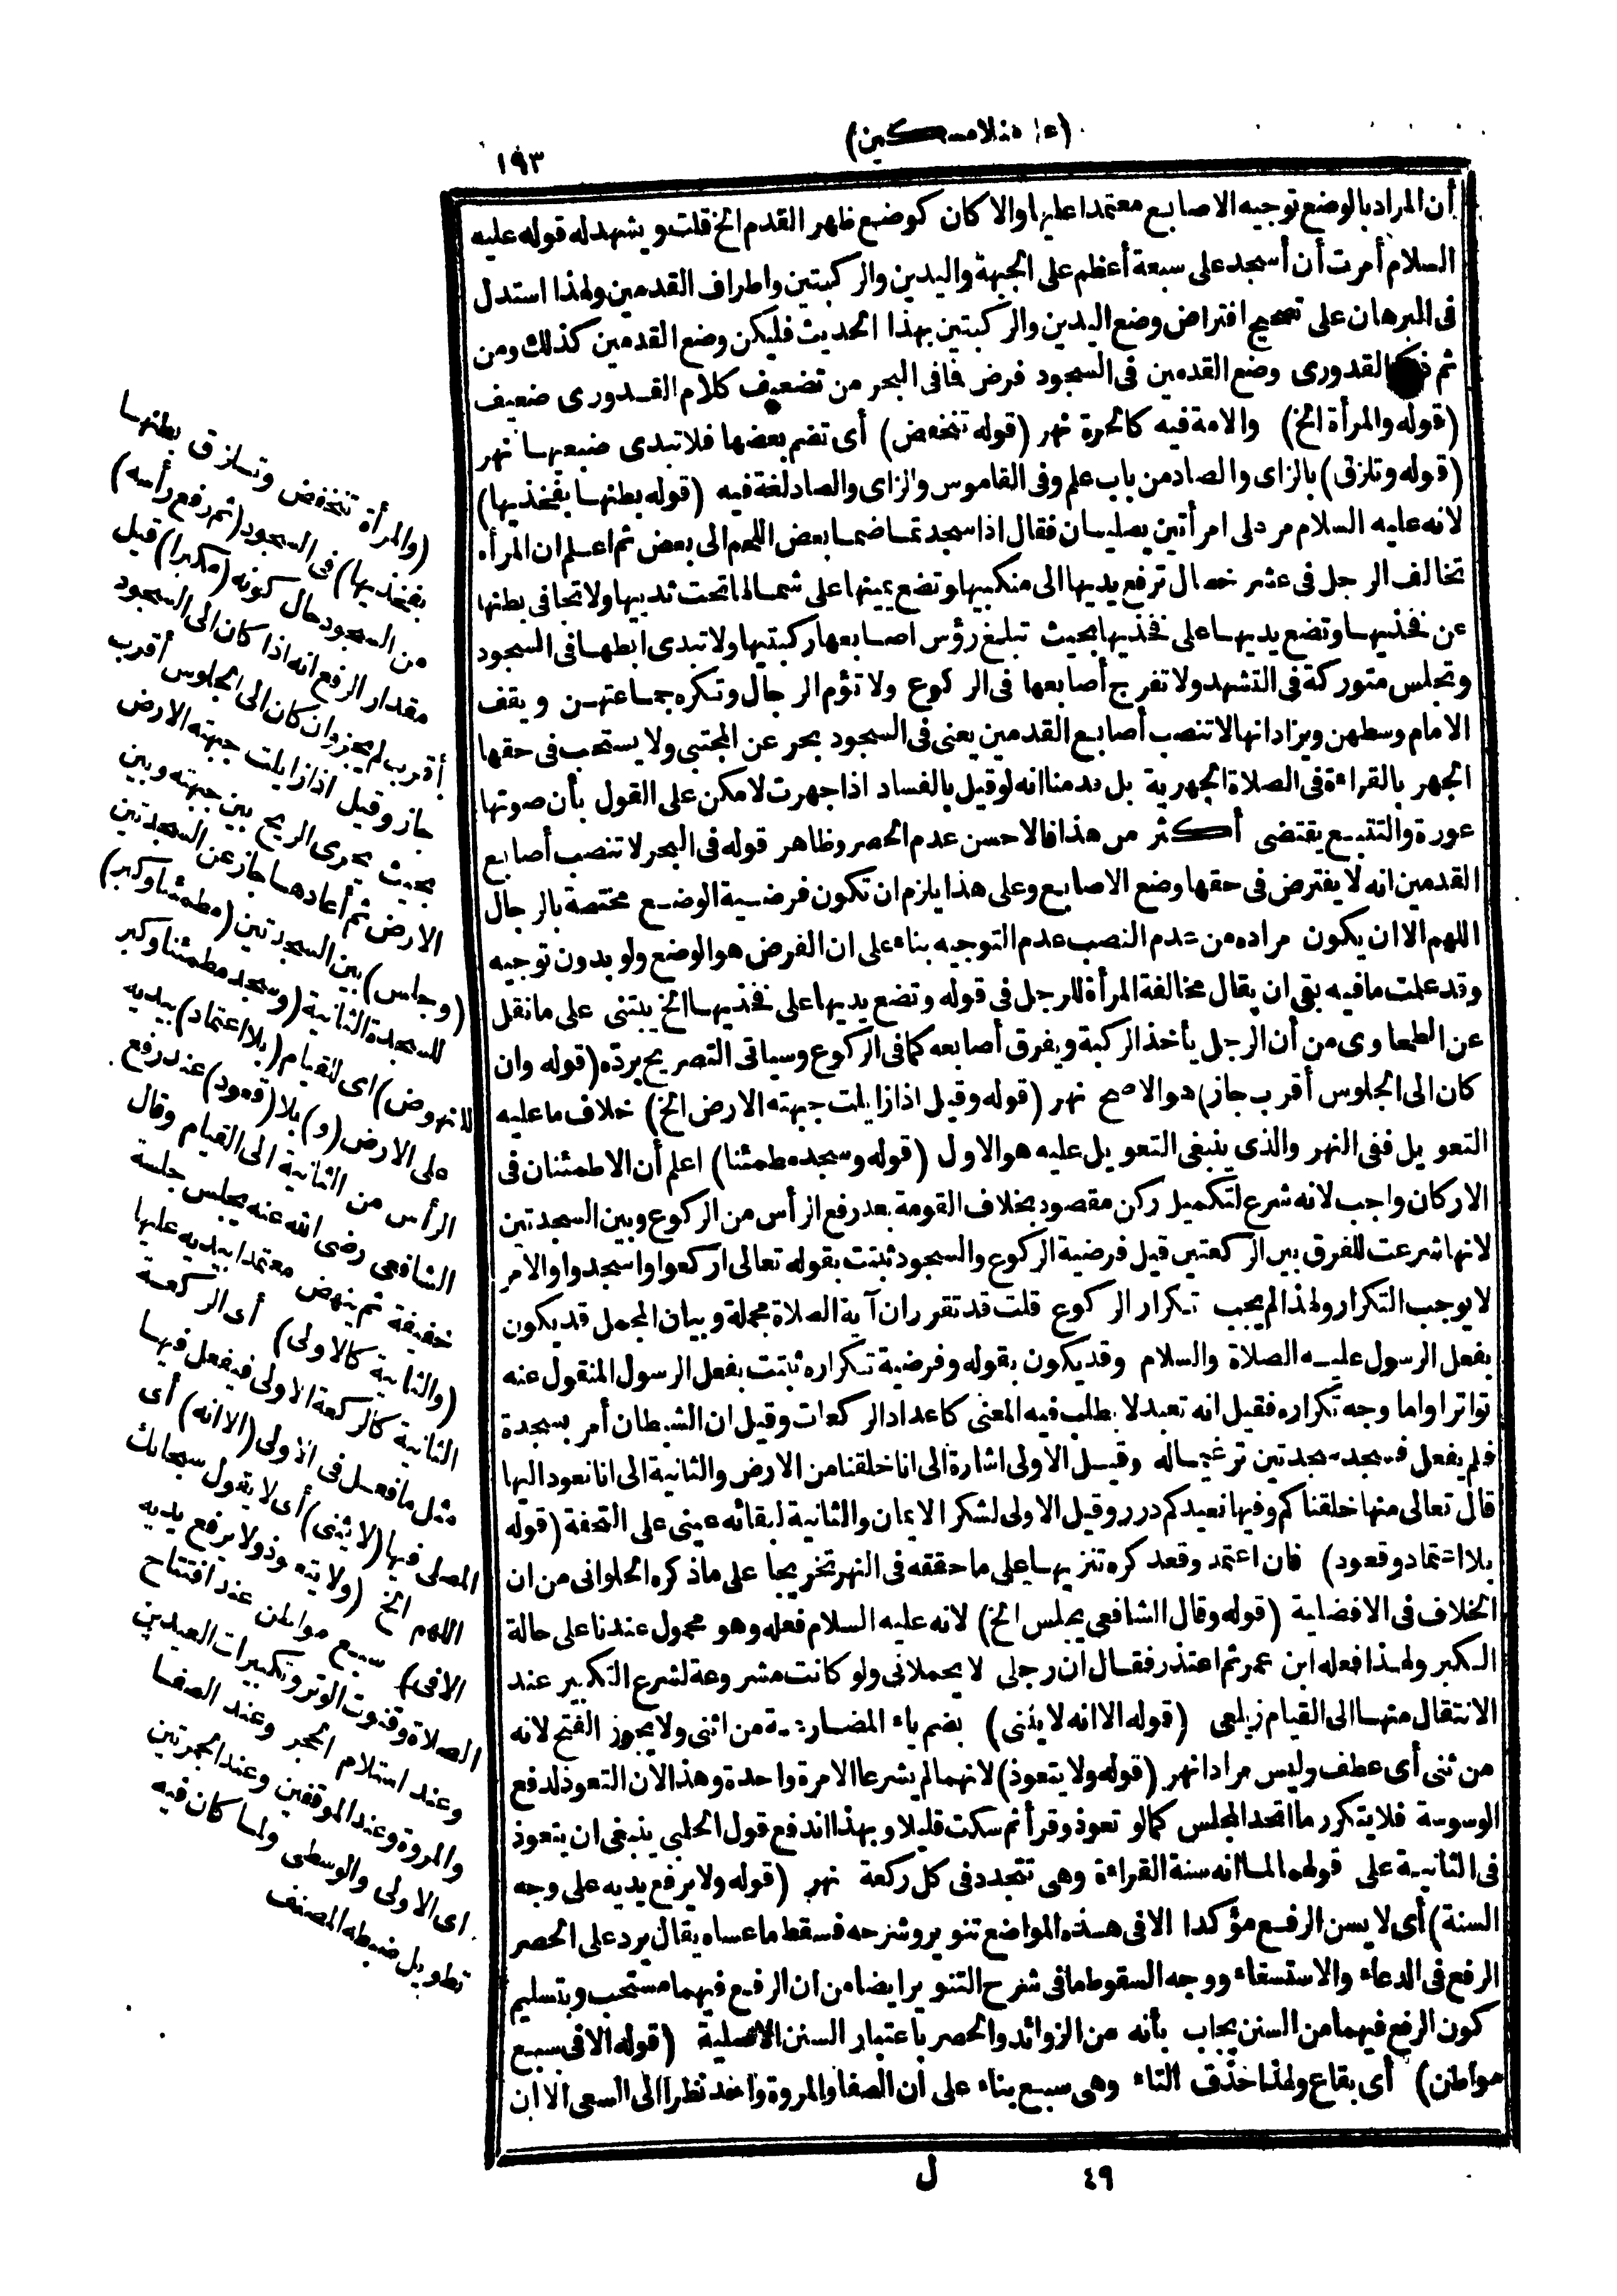 (على منلا مسكين)
١٩٣
أن المراد بالوضع توجيه الاصابع معتمدا عليها والا كان كوضع ظهر القدم الخ قلت ويشهد له قوله عليه
السلام أمرت أن أسجد على سبعة أعظم على الجبهة واليدين والركبتين واطراف القدمين ولهذا استدل
فى البرهان على تصحيح افتراض وضع اليدين والركبتين بهذا الحديث فليكن وضع القدمين كذلك ومن
ثم القدورى وضع القدمين فى السجود فرض فافى البحر من تضعيف كلام القدورى ضعيف
(قوله والمرأة الخ) والامة فيه كالحرة نهر (قوله تنخفض) أى تضم بعضها فلا تبدى ضبعيها نهر
(قوله وتلزق) بالزاى والصاد من باب علم وفى القاموس والزاى والصاد لغة فيه (قوله بطنها بفخذيها)
لانه عليه السلام مر على امرأتين يصليان فقال اذا سجدتما ضما بعض اللحم الى بعض ثم اعلم ان المرأة
تخالف الرجل فى عشر خصال ترفع يديها الى منكبيها وتضع يمينها على شمالها تحت ثدييها ولا تجافى بطنها
عن فخذيها وتضع يديها على فخذيها بحيث تبلغ رؤس اصابعها ركبتيها ولا تبدى ابطها فى السجود
وتجلس متوركة فى التشهد ولا تفرج أصابعها فى الركوع ولا تؤم الرجال وتكره جماعتهن ويقف
الامام وسطهن ويزاد انها لا تنصب أصابع القدمين يعنى فى السجود بحر عن المجتبى ولا يستحب فى حقها
الجهر بالقراءة فى الصلاة الجهرية بل قدمنا انه لو قيل بالفساد اذا جهرت لامكن على القول بأن صوتها
عورة والتتبع يقتضى أكثر من هذا فالاحسن عدم الحصر وظاهر قوله فى البحر لا تنصب أصابع
القدمين انه لا يفترض فى حقها وضع الاصابع وعلى هذا يلزم ان تكون فرضية الوضع مختصة بالرجال
اللهم الا ان يكون مراده من عدم النصب عدم التوجيه بناء على ان الفرض هو الوضع ولو بدون توجيه
وقد علمت مافيه بقى ان يقال مخالفة المرأة للرجل فى قوله وتضع يديها على فخذيها الخ يبتنى على مانقل
عن الطحاوى من أن الرجل يأخذ الركبة ويفرق أصابعه كما فى الركوع وسياتى التصريح برده (قوله وان
كان الى الجلوس أقرب جاز) هو الاصح نهر (قوله وقيل اذا زايلت جبهته الارض الخ) خلاف ما عليه
التعويل ففى النهر والذى ينبغى التعويل عليه هو الاول (قوله وسجد مطمئنا) اعلم أن الاطمئنان فى
الاركان واجب لانه شرع لتكميل ركن مقصود بخلاف القومة بعد رفع الرأس من الركوع وبين السجدتين
لانها شرعت للفرق بين الركعتين قيل فرضية الركوع والسجود ثبتت بقوله تعالى اركعوا واسجدوا والامر
لا يوجب التكرار ولهذا لم يجب تكرار الركوع قلت قد تقرر ان آية الصلاة مجملة وبيان المجمل قد يكون
بفعل الرسول عليه الصلاة والسلام وقد يكون بقوله وفرضية تكراره ثبتت بفعل الرسول المنقول عنه
تواترا واما وجه تكراره فقيل انه تعبد لا يطلب فيه المعنى كاعداد الركعات وقيل ان الشيطان أمر بسجدة
فلم يفعل فنسجد سجدتين ترغيما له وقيل الاولى اشارة الى انا خلقنا من الارض والثانية الى انا نعود اليها
قال تعالى منها خلقناكم وفيها نعيدكم درر وقيل الاولى لشكر الايمان والثانية لبقائه عينى على التحفة (قوله
بلا اعتماد وقعود) فان اعتمد وقعد كره تنزيها على ما حققه فى النهر تخريجا على ما ذكره الحلوانى من ان
الخلاف فى الافضلية (قوله وقال الشافعى يجلس الخ) لانه عليه السلام فعله وهو محمول عندنا على حالة
الكبر ولهذا فعله ابن عمر ثم اعتذر فقال ان رجلى لا يحملانى ولو كانت مشروعة لشرع التكبير عند
الانتقال منها الى القيام زيلعى (قوله الا انه لا يثنى) بضم ياء المضارعة من اثنى ولا يجوز الفتح لانه
من ثنى أى عطف وليس مرادا نهر (قوله ولا يتعوذ) لانهما لم يشرعا الا مرة واحدة وهذا لان التعوذ لدفع
الوسوسة فلا يتكرر ما اتحد المجلس كما لو تعوذ وقرأ ثم سكت قليلا وبهذا اندفع قول الحلبى ينبغى ان يتعوذ
فى الثانية على قولهما لما انه سنة القراءة وهى تتجدد فى كل ركعة نهر (قوله ولا يرفع يديه على وجه
السنة) أى لا يسن الرفع مؤكدا الا فى هذه المواضع تنوير وشرحه فسقط ما عساه يقال يرد على الحصر
الرفع فى الدعاء والاستسقاء ووجه السقوط ما فى شرح التنوير ايضا من ان الرفع فيهما مستحب وبتسليم
كون الرفع فيهما من السنن يجاب بأنه من الزوائد والحصر باعتبار السنن الاصلية (قوله الا فى سبع
مواطن) أى بقاع ولهذا حذف التاء وهى سبع بناء على أن الصفا والمروة واحد نظرا الى السعى الا ان
(والمرأة تنخفض وتلزق بطنها
بفخذيها) فى السجود (ثم رفع رأسه)
من السجود حال كونه (مكبرا) قيل
مقدار الرفع انه اذا كان الى السجود
أقرب لم يجز وان كان الى الجلوس أقرب
جاز وقيل اذا زايلت جبهته الارض
بحيث يجرى الريح بين جبهته وبين
الارض ثم أعادها جاز عن السجدتين
(وجلس) بين السجدتين (مطمئنا وكبر)
للسجدة الثانية (وسجد مطمئنا وكبر
للنهوض) اى للقيام (بلا اعتماد) بيديه
على الارض (و) بلا (قعود) عند رفع
الرأس من الثانية الى القيام وقال
الشافعى رضى الله عنه يجلس جلسة
خفيفة ثم ينهض معتمدا بيديه عليها
(والثانية كالاولى) أى الركعة
الثانية كالركعة الاولى فيفعل فيها
مثل ما فعل فى الاولى (الا انه) أى
المصلى فيها (لا يثنى) أى لا يقول سبحانك
اللهم الخ (ولا يتعوذ ولا يرفع يديه
الا فى) سبع مواطن عند افتتاح
الصلاة وقنوت الوتر وتكبيرات العيدين
وعند استلام الحجر وعند الصفا
والمروة وعند الموقفين وعند الجمرتين
اى الاولى والوسطى ولما كان فيه
تطويل ضبطه المصنف
٤٩
ل